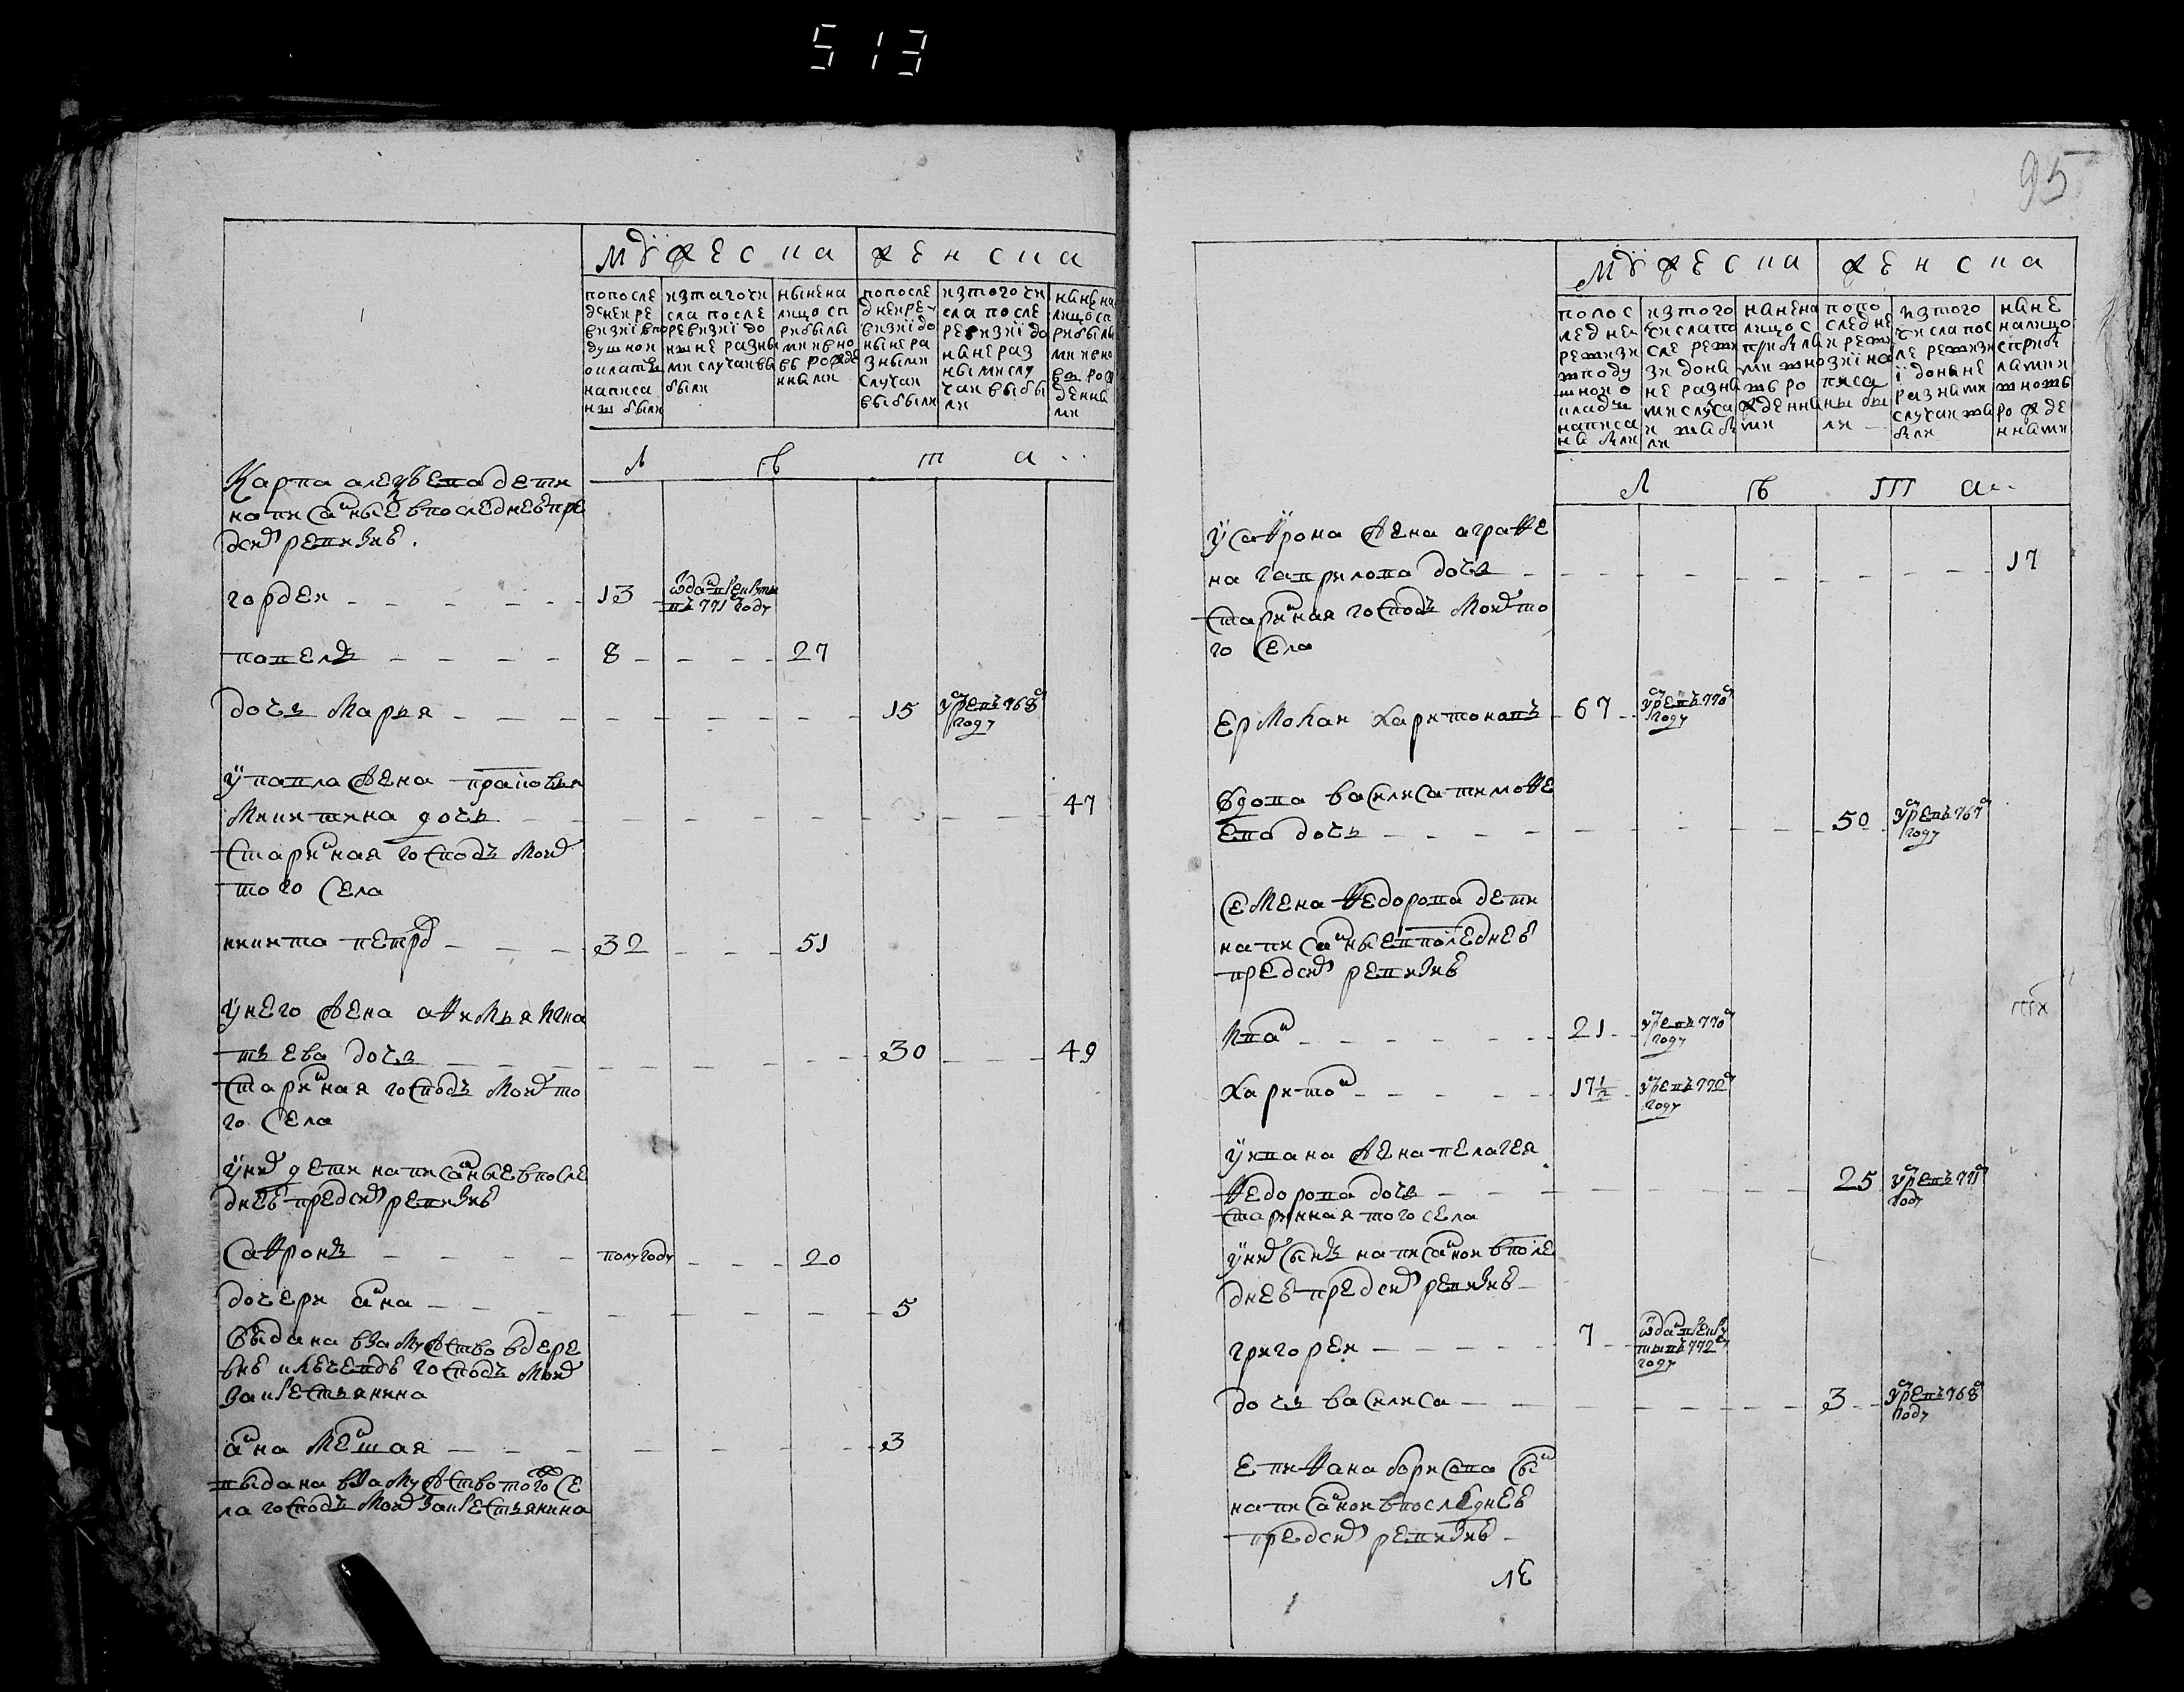 513
95
мужеска женска
по последней ревизїи в подушной оклад написаны были
из того числа после ревизїи до ныне разными случаи выбыли
ныне налицо с прибылыми и вновь рожденными
по последней ревизїи до ныне разными случаи выбыли
из того числа после ревизїи до ныне разными случаи выбыли
ныне налицо с прибылыми и вновь рожденными
л ѣ т а
Карпа алеѯеева дети
написаные в последней пре
дсей ревизиѣ.
гордеи 13 ѿдан в рекруты
въ 771 году
павелъ 8 27
дочь марья 15 умре въ 768
году
у павла жена прасковья
микитина дочь 47
старинная господъ моих
того села
никита петров 32 51
у него жена афимья игна
тьева дочь 30 49
старинная господъ моих то
го села
у них дети написаные в после
дней предсей ревизиѣ
сафронъ полугоду 20
дочери анна 5
выдана в замужство в дере
вню господъ моих
за крестьянина
анна меншая 3
выдана в замужство того ж се
ла господъ моих за крестьянина
мужеска женска
по последней ревизиї в подушной оклад написаны были
из того числа после ревизи до ныне разными случаи выбыли
ныне налицо с прибылыми и вновь рожденными
по последней ревизїи написаны были
из того числа после ревизиї до ныне разными случаи выбыли
ныне налицо с прибылыми и вновь рожденными
л ѣ т а
у сафрона жена аграфе
на гаврилова дочь 17
старинная господъ моих то
го села
ермолаи харитоновъ 67 умре въ 770
году
вдова василиса тимофе
ева дочь 50 умре въ 767
году
семена федорова дети
написаные в последней
предсей ревизиѣ
иван 21 умре въ 770
году
харитон 17½ умре въ 772
году
у ивана жена пелагея
федорова дочь 25 умре въ 771
году
старинная того села
у них сынъ написаной в после
дней предсей ревизиѣ
григореи 7 ѿдан в рекру
ты въ 772
году
дочь василиса 3 умре въ 768
году
епифана борисова сын
написаной в последней
предсей ревизиѣ
ле